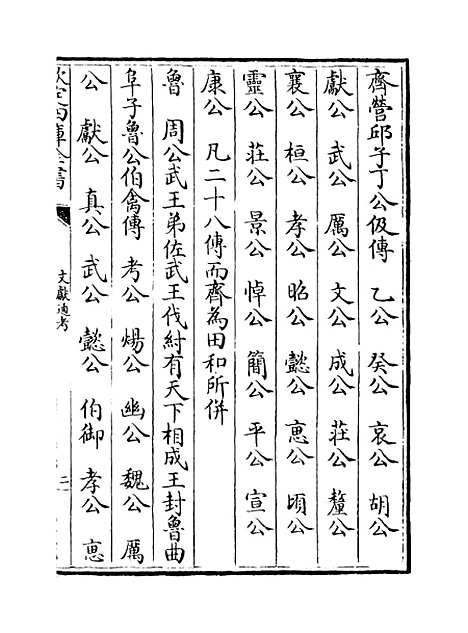 齊營邱子丁公伋傳　乙公　癸公　哀公　胡公
獻公　武公　厲公　文公　成公　莊公　釐公
襄公　桓公　孝公　昭公　懿公　惠公　頃公
靈公　莊公　景公　悼公　簡公　平公　宣公
康公　凡二十八傳而齊為田和所併
魯　周公武王弟佐武王伐紂有天下相成王封魯曲
阜子魯公伯禽傳　考公　煬公　幽公　魏公　厲
公　獻公　真公　武公　懿公　伯御　孝公　惠
欽定四庫全書
文獻通考
二